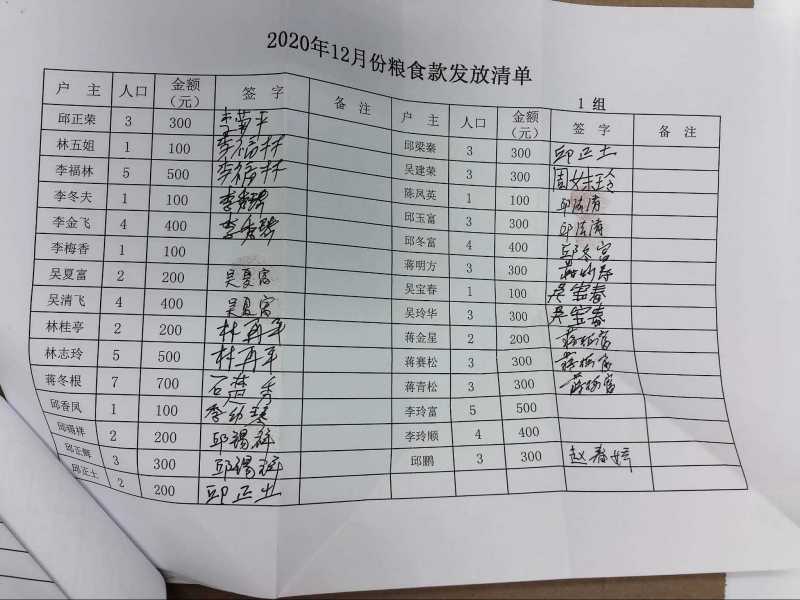 2020年12月份粮食款发放清单
1 组
户 主 人口 金额（元） 签 字 备 注
邱正荣 3 300
林五姐 1 100 李福林
李福林 5 500 李福林
李冬夫 1 100
李金飞 4 400
李梅香 1 100
吴夏富 2 200 吴夏富
吴清飞 4 400 吴夏富
林桂亭 2 200 林再平
林志玲 5 500 林再平
蒋冬根 7 700 石楚秀
邱香凤 1 100
邱锡祥 2 200 邱锡祥
邱正辉 3 300 邱锡祥
邱正土 2 200 邱正土
户 主 人口 金额（元） 签 字 备 注
邱梁秦 3 300 邱正土
吴建荣 3 300
陈凤英 1 100 邱法清
邱玉富 3 300 邱法清
邱冬富 4 400 邱冬富
蒋明方 3 300
吴宝春 1 100 吴宝春
吴玲华 3 300 吴宝春
蒋金星 2 200
蒋赛松 3 300
蒋青松 3 300
李玲富 5 500
李玲顺 4 400
邱鹏 3 300 赵春婷